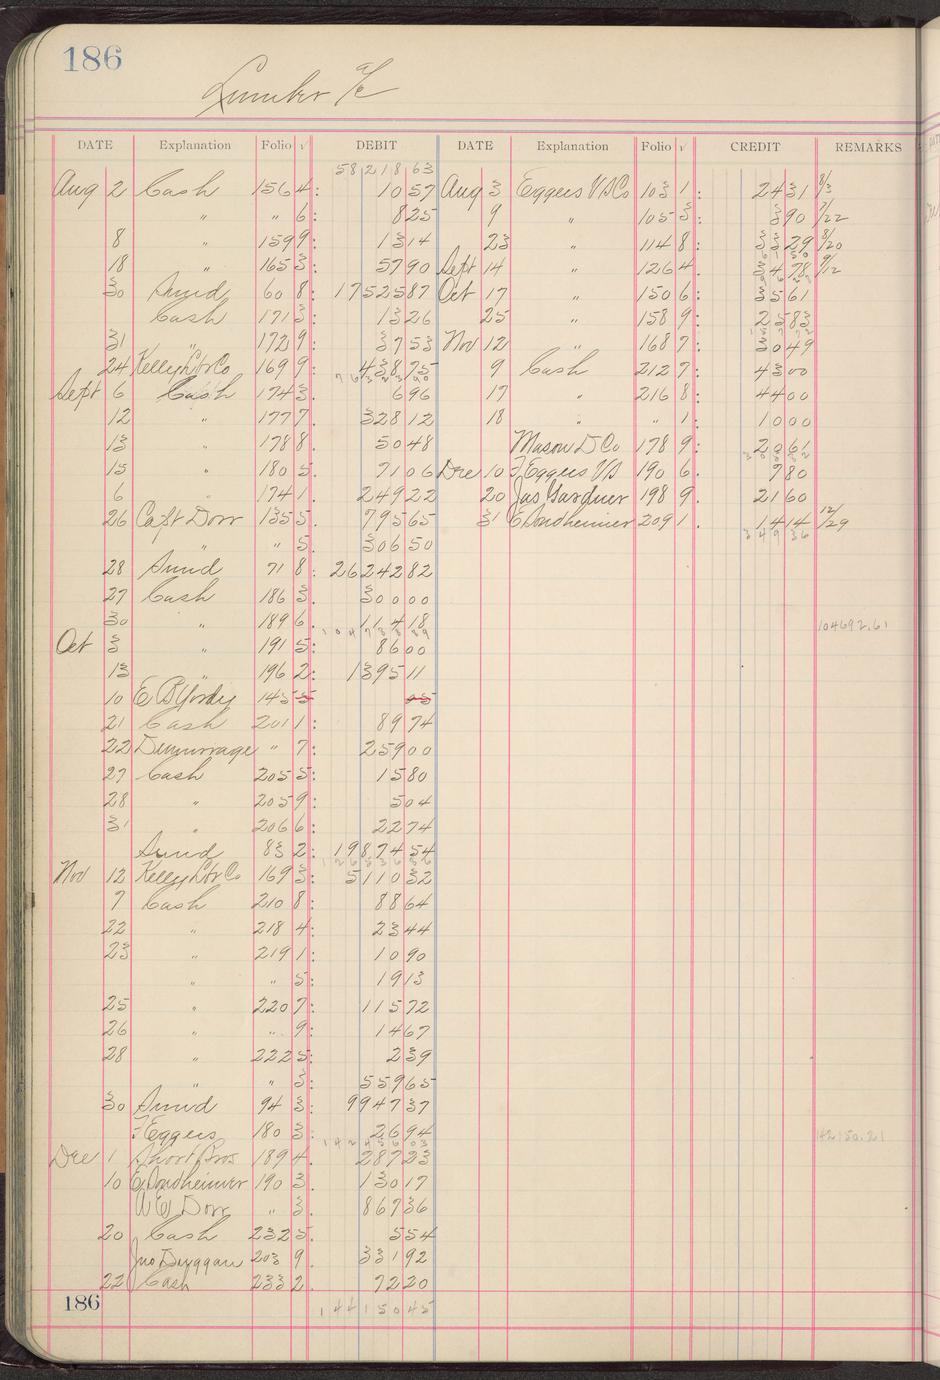 186
Lumber a/c
DATE Explanation Folio √ DEBIT DATE Explanation Folio √ CREDIT REMARKS
58218 63
Aug 2 Cash 156 4: 10 57 Aug 3 Eggers V S Co 103 1: 24 31 8/3
" " 6: 8 25 9 " 105 3: 3 90 7/22
8 " 159 9: 13 14 23 " 114 8: 33 29 8/20
18 " 165 3: 57 90 Sept 14 " 126 4. 34 78 9/12
30 Sund 60 8: 17525 87 Oct 17 " 150 6: 35 61
Cash 171 3: 13 26 25 " 158 9: 25 83
31 " 172 9: 37 53 Nov 12 " 168 7: 30 49
24 Kelly Lbr Co 169 9: 438 75 9 Cash 212 7: 43 00
Sept 6 Cash 174 3: 6 96 17 " 216 8: 44 00
12 " 177 7: 328 12 18 " " 1: 10 00
13 " 178 8. 50 48 Mason D Co 178 9: 20 61
15 " 180 5. 71 06 Dec 10 F Eggers V S 190 6. 7 80
6 " 174 1. 249 22 20 Jas Gardner 198 9. 21 60
26 Capt Dorr 135 5. 795 65 31 E Sondheimer 209 1. 14 14 12/29
" " 5. 306 50 349 36
28 Sund 71 8: 26242 82
27 Cash 186 3. 300 00
30 " 189 6. 114 18 104692.61
Oct 3 " 191 5: 86 00
13 " 196 2: 1395 11
10 145 5 05
21 Cash 201 1: 89 74
22 Demurrage " 7: 259 00
27 Cash 205 5: 15 80
28 " 205 9: 5 04
31 " 206 6: 22 74
Sund 83 2: 19874 54
Nov 12 Kelly Lbr Co 169 3: 5110 32
7 Cash 210 8: 88 64
22 " 218 4: 23 44
23 " 219 1: 10 90
" " 5: 19 13
25 " 220 7: 115 72
26 " " 9: 14 67
28 " 222 5: 2 39
" " 3: 559 65
30 Sund 94 3: 9947 37
F Eggers 180 3: 26 94 142150.21
Dec 1 Short Bros 189 4. 287 23
10 E Sondheimer 190 3. 130 17
W E Dorr " 3. 867 36
20 Cash 232 5. 5 54
Jno Duggan 203 9. 331 92
22 Cash 233 2. 72 20
186 144150 45